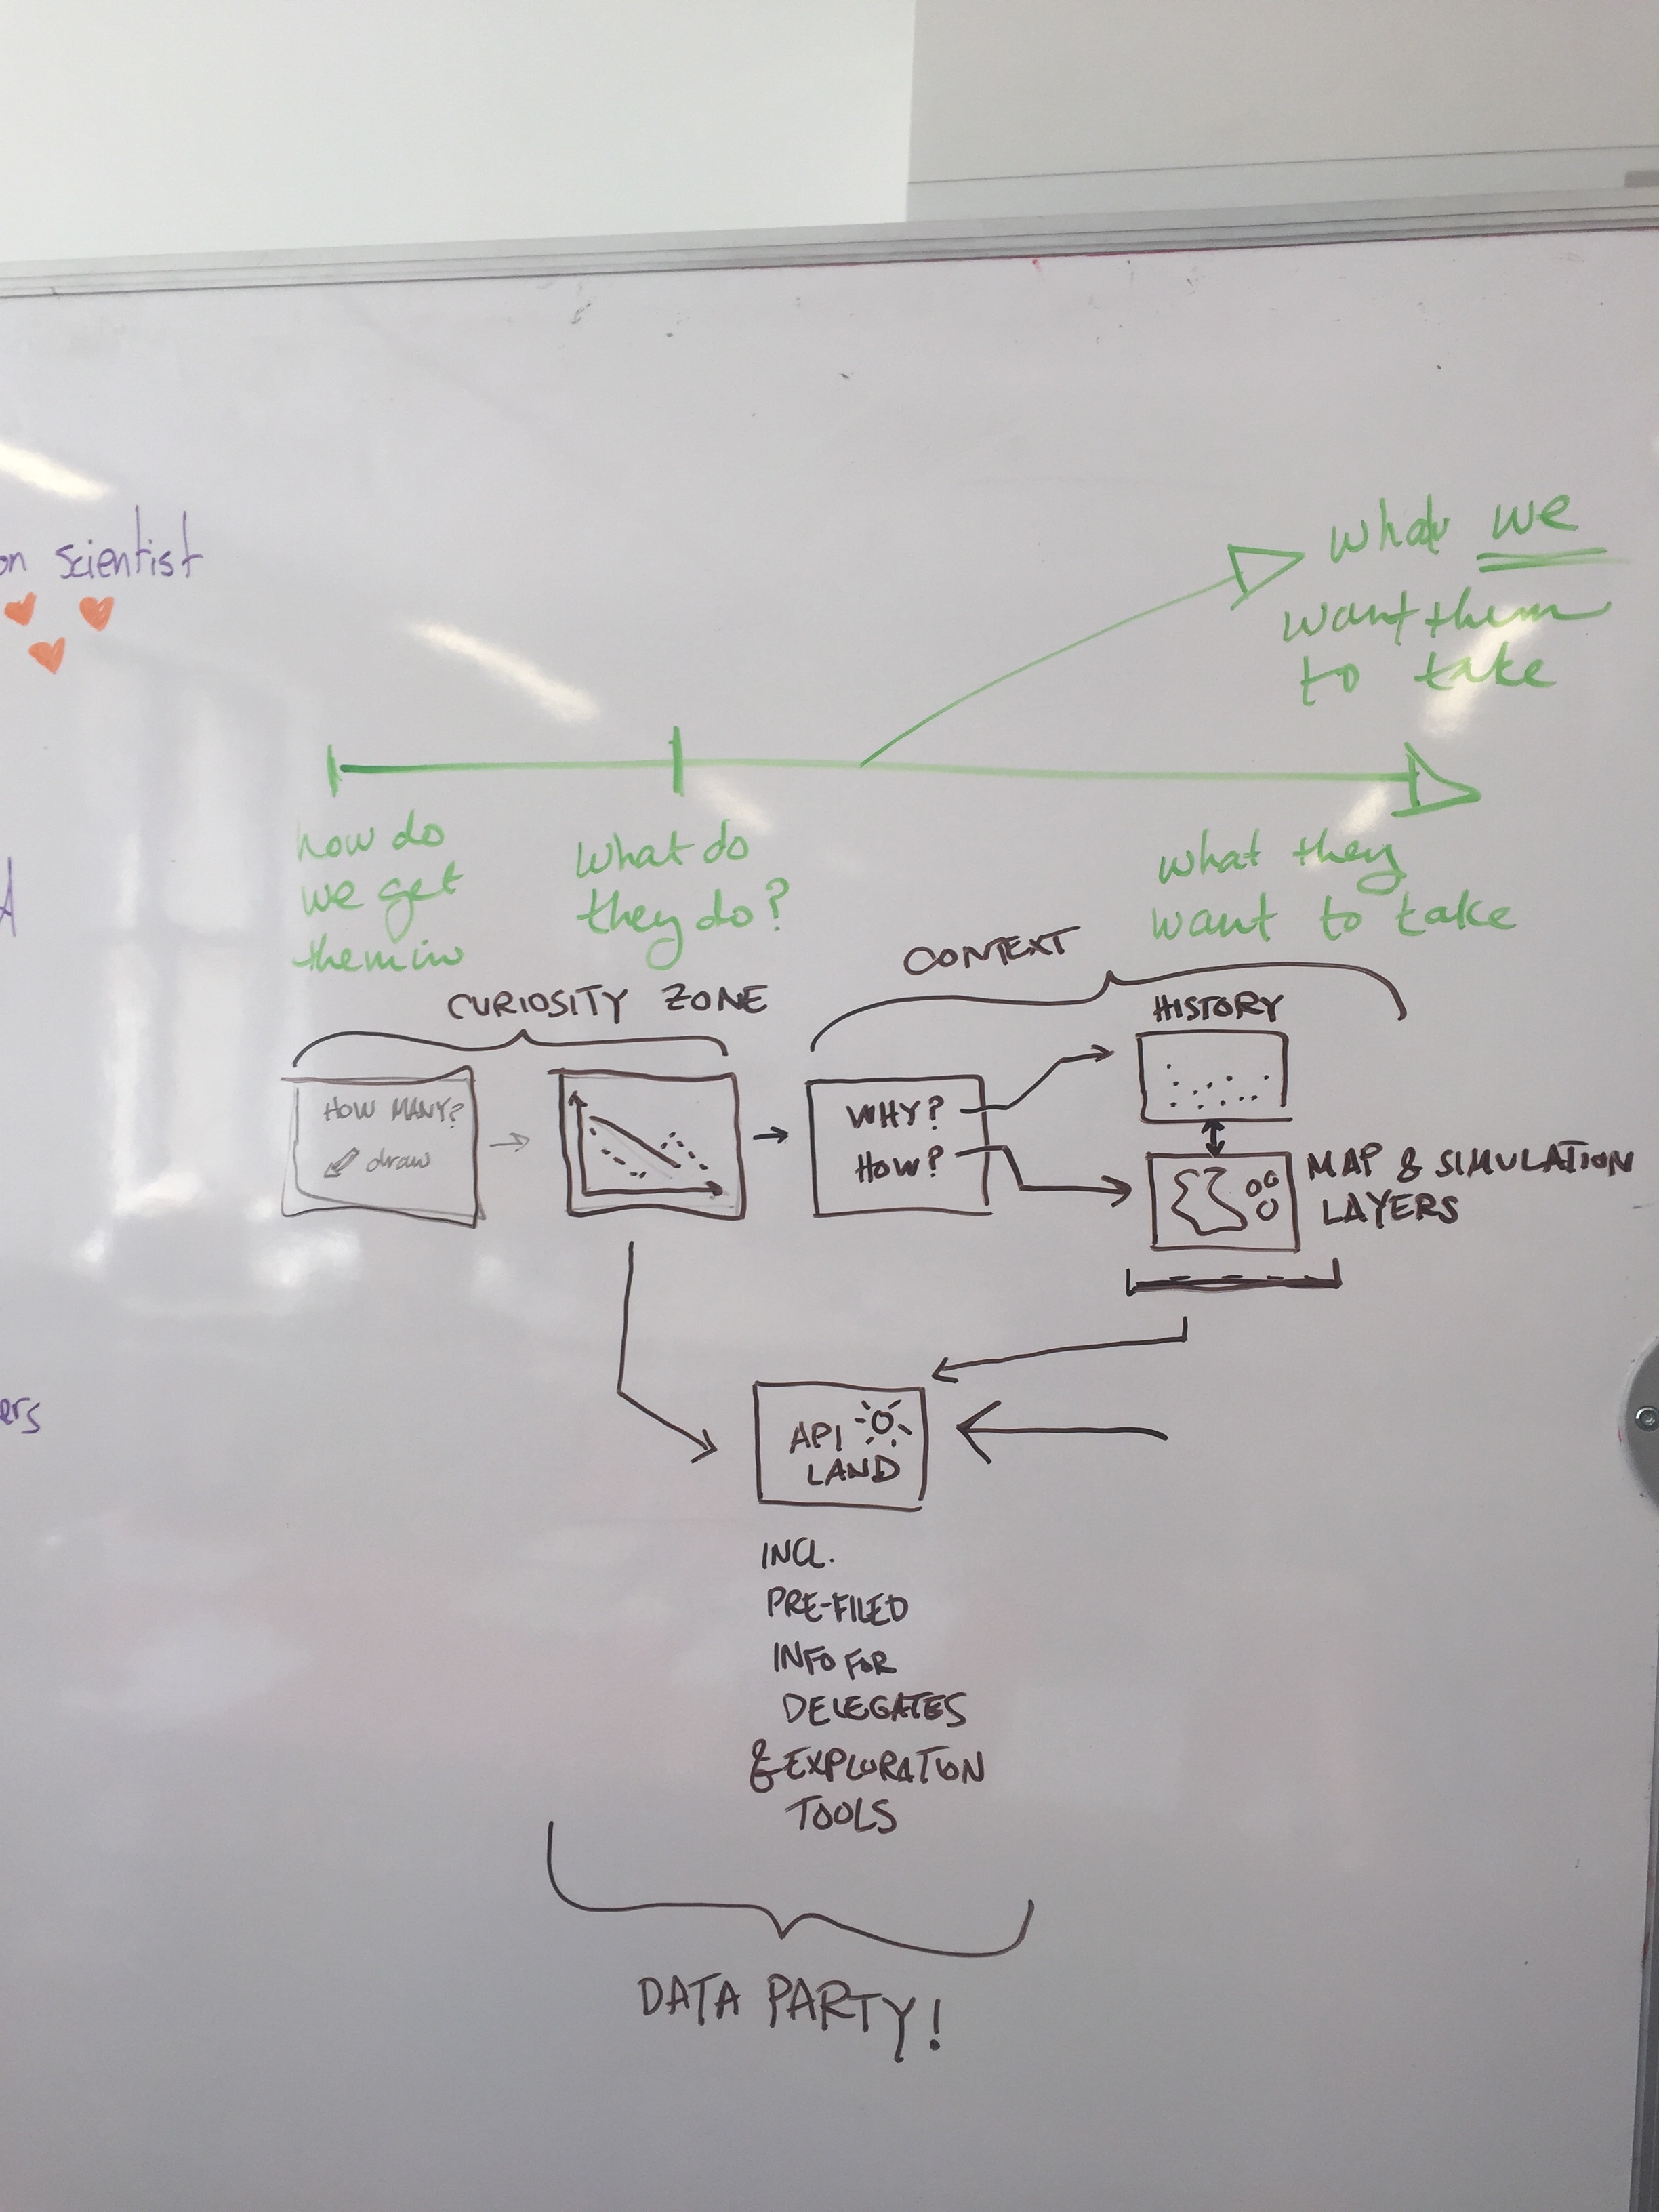 on scientist
what we
want them
to take
how do
we get
them in
What do
they do?
what they
want to take
A
CURIOSITY ZONE
CONTEXT
HOW MANY?
draw
WHY?
HOW?
HISTORY
MAP & SIMULATION
LAYERS
ers
API
LAND
INCL.
PRE-FILED
INFO FOR
DELEGATES
& EXPLORATION
TOOLS
DATA PARTY!